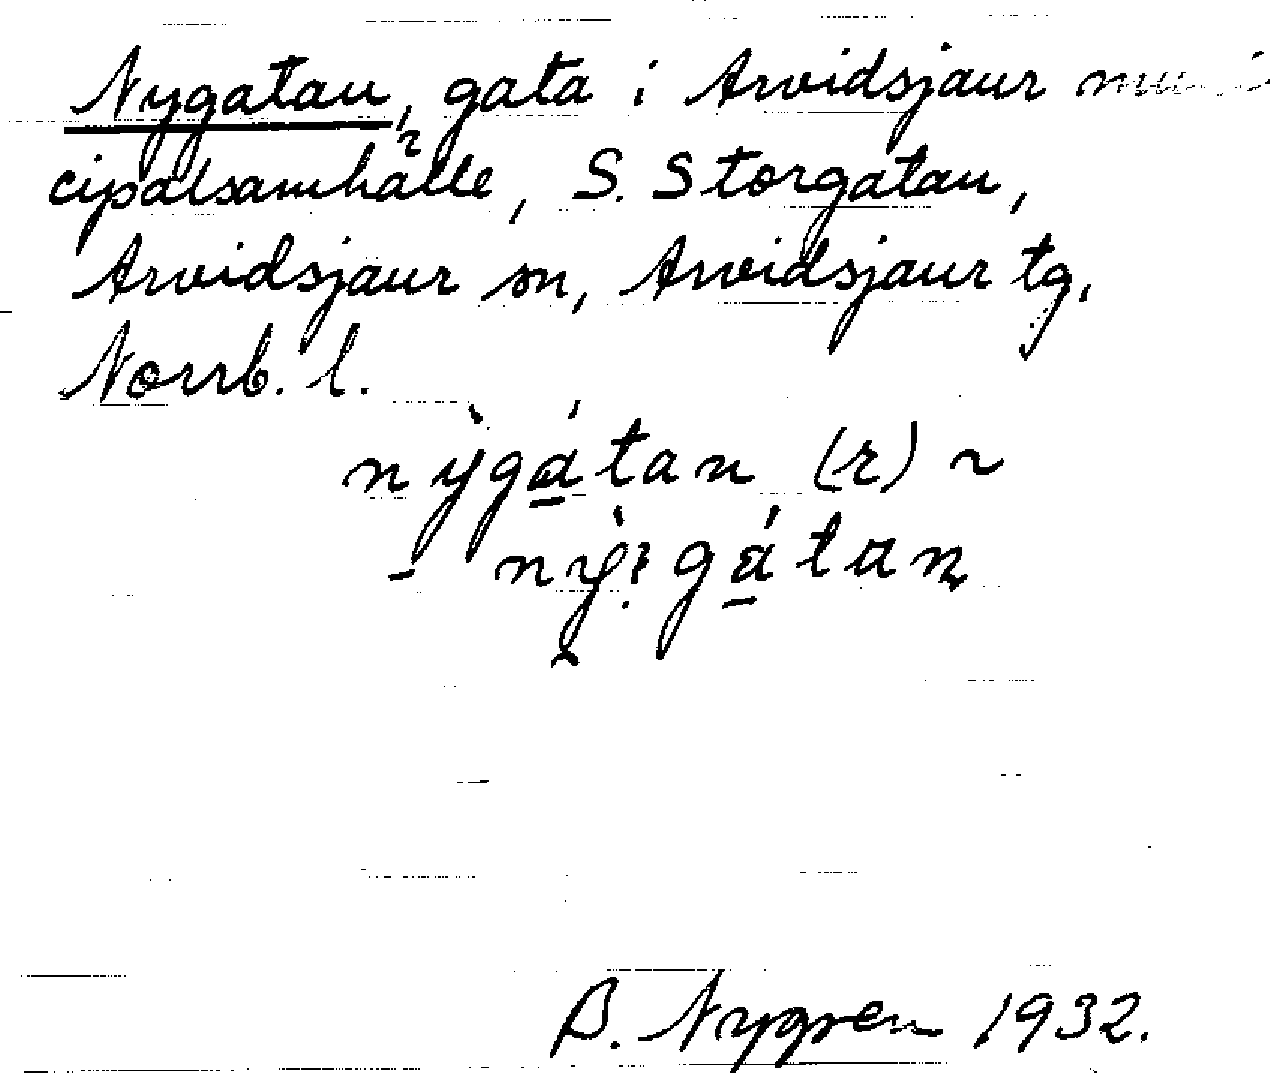 Nygatan, gata i Arvidsjaur muni
cipalsamhälle, S. Storgatan,
Arvidsjaur sn, Arvidsjaur tg,
Norrb. l.
nỳgátan (r) ~
- nỳigátan
B. Nygren 1932.